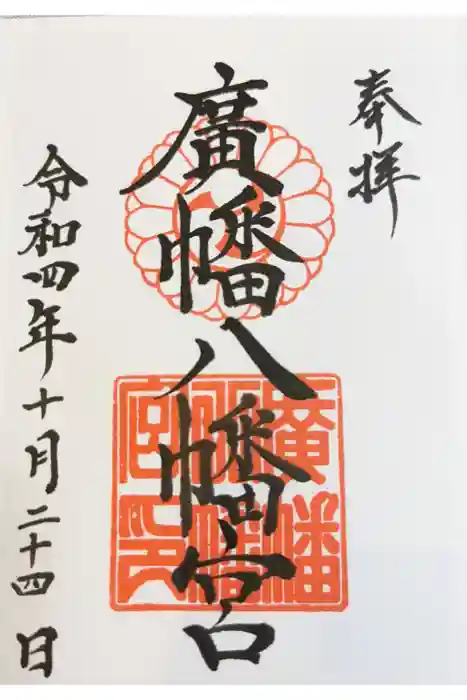 奉拝
廣幡八幡宮
廣幡八幡宮印
令和四年十月二十四日